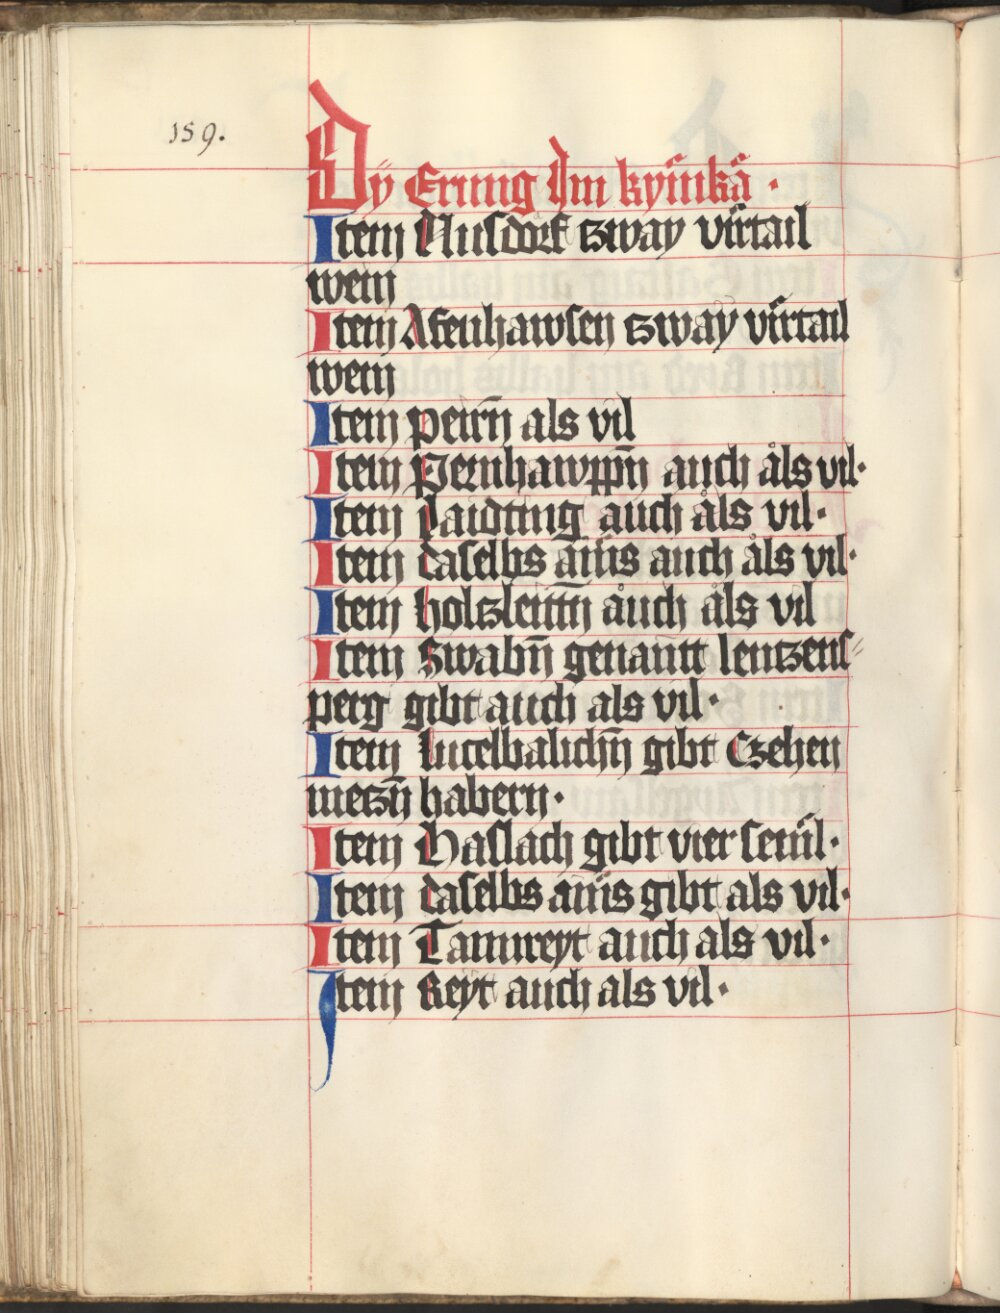 159.
Dÿ Erung Im kyͤmkā ·
Item Nusdorf tzway virtail
wein
Item Afenhawsen tzway virtail
wein
Item peirn̄ als vil
Item Pernhawppn̄ auch als vil·
Item Laidting auch als vil·
Item daselbs ains auch als vil·
Item holtzleittn̄ auch als vil
Item Swabn̄ genant lentzens⸗
perg gibt auch als vil·
Item Lutelhalichn̄ gibt Czehen
metzn̄ habern·
Item Haslach gibt vier semil·
Item daselbs ains gibt als vil·
Item Tannreyt auch als vil·
Item Reyt auch als vil·